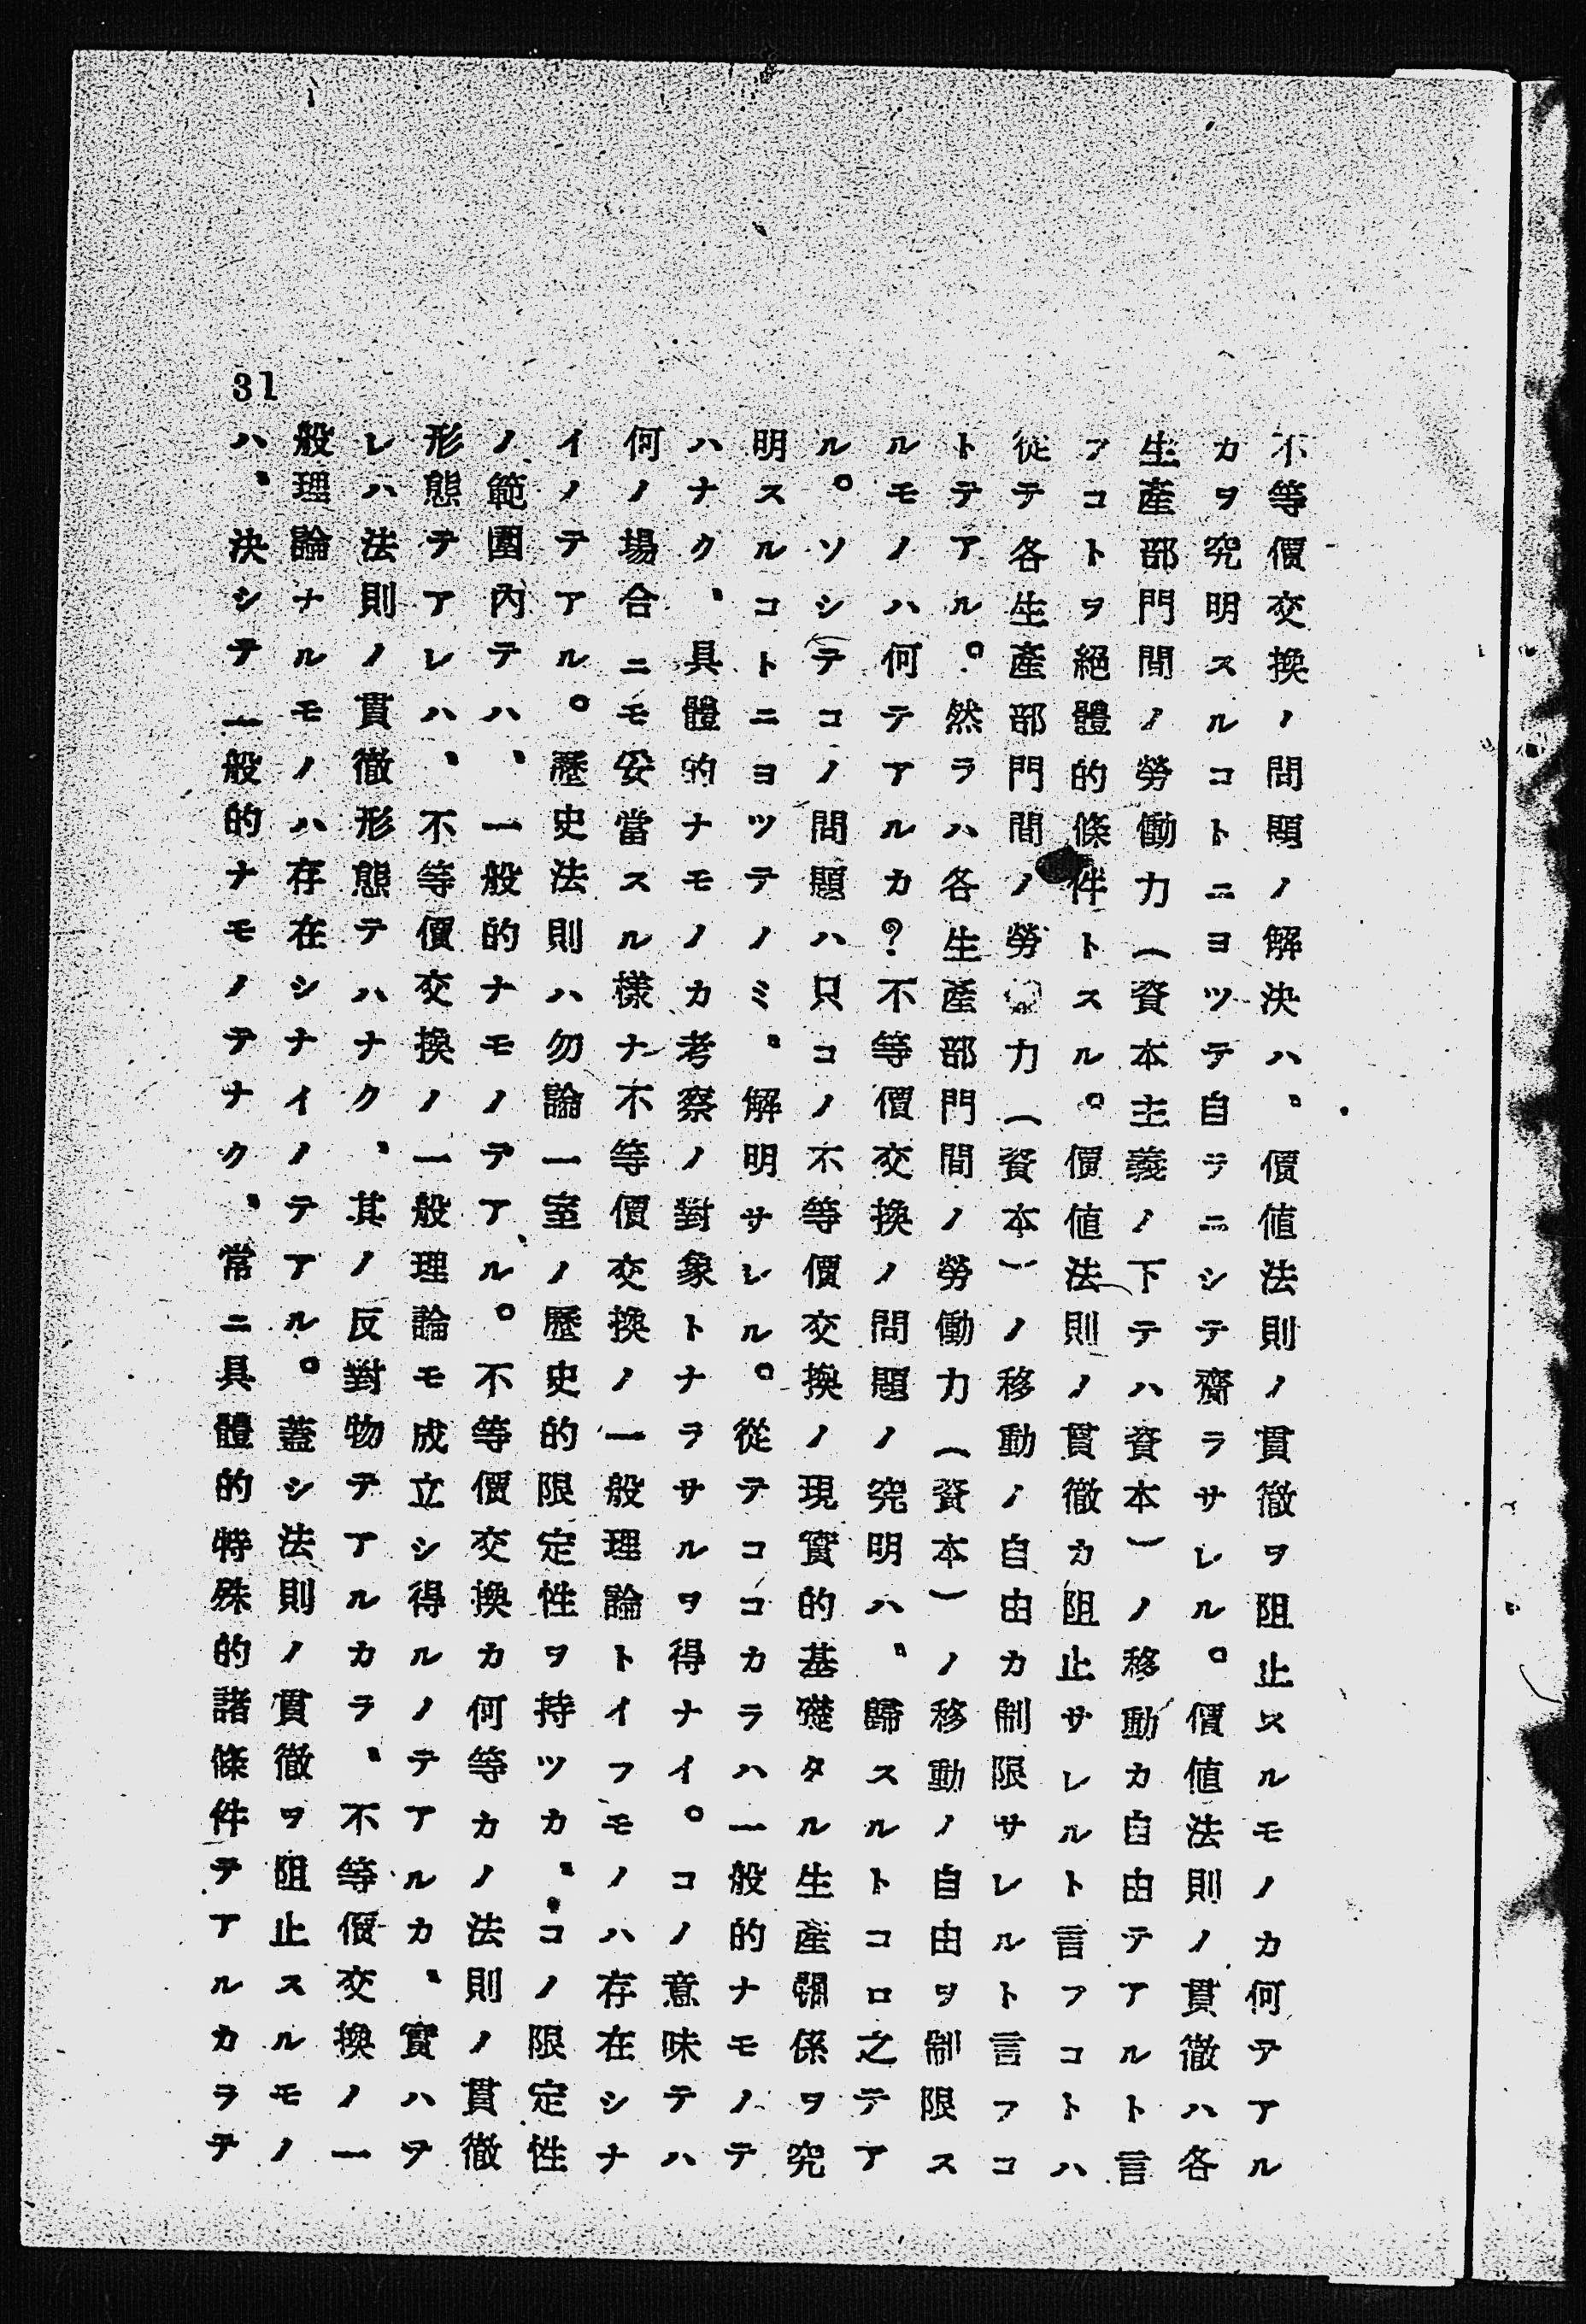 不等價交換ノ問題ノ解決ハ、價値法則ノ貫徹ヲ阻止スルモノカ何テアル
カヲ究明スルコトニヨツテ自ラニシテ齎ラサレル。價値法則ノ貫徹ハ各
生產部門間ノ勞働力(資本主義ノ下テハ資本)ノ移動カ自由テアルト言
フコトヲ絕體的條件トスル。價値法則ノ貫徹カ阻止サレルト言フコトハ
從テ各生產部門間ノ勞力(資本)ノ移動ノ自由カ制限サレルト言フコ
トテアル。然ラハ各生產部門間ノ勞働力(資本)ノ移動ノ自由ヲ制限ス
ルモノハ何テアルカ?不等價交換ノ問題ノ究明ハ、歸スルトコロ之テア
ル。ソシテコノ問題ハ只コノ不等價交換ノ現實的基礎タル生產關係ヲ究
明スルコトニヨツテノミ、解明サレル。從テココカラハ一般的ナモノテ
ハナク、具體的ナモノカ考察ノ對象トナラサルヲ得ナイ。コノ意味テハ
何ノ場合ニモ妥當スル樣ナ不等價交換ノ一般理論トイフモノハ存在シナ
イノテアル。歷史法則ハ勿論一室ノ歷史的限定性ヲ持ツカ、コノ限定性
ノ範圍內テハ、一般的ナモノテアル。不等價交換カ何等カノ法則ノ貫徹
形態テアレハ、不等價交換ノ一般理論モ成立シ得ルノテアルカ、實ハヲ
レハ法則ノ貫徹形態テハナク、其ノ反對物テアルカラ、不等價交換ノ一
般理論ナルモノハ存在シナイノテアル。蓋シ法則ノ貫徹ヲ阻止スルモノ
ハ、決シテ一般的ナモノテナク、常ニ具體的特殊的諸條件テアルカラテ
31